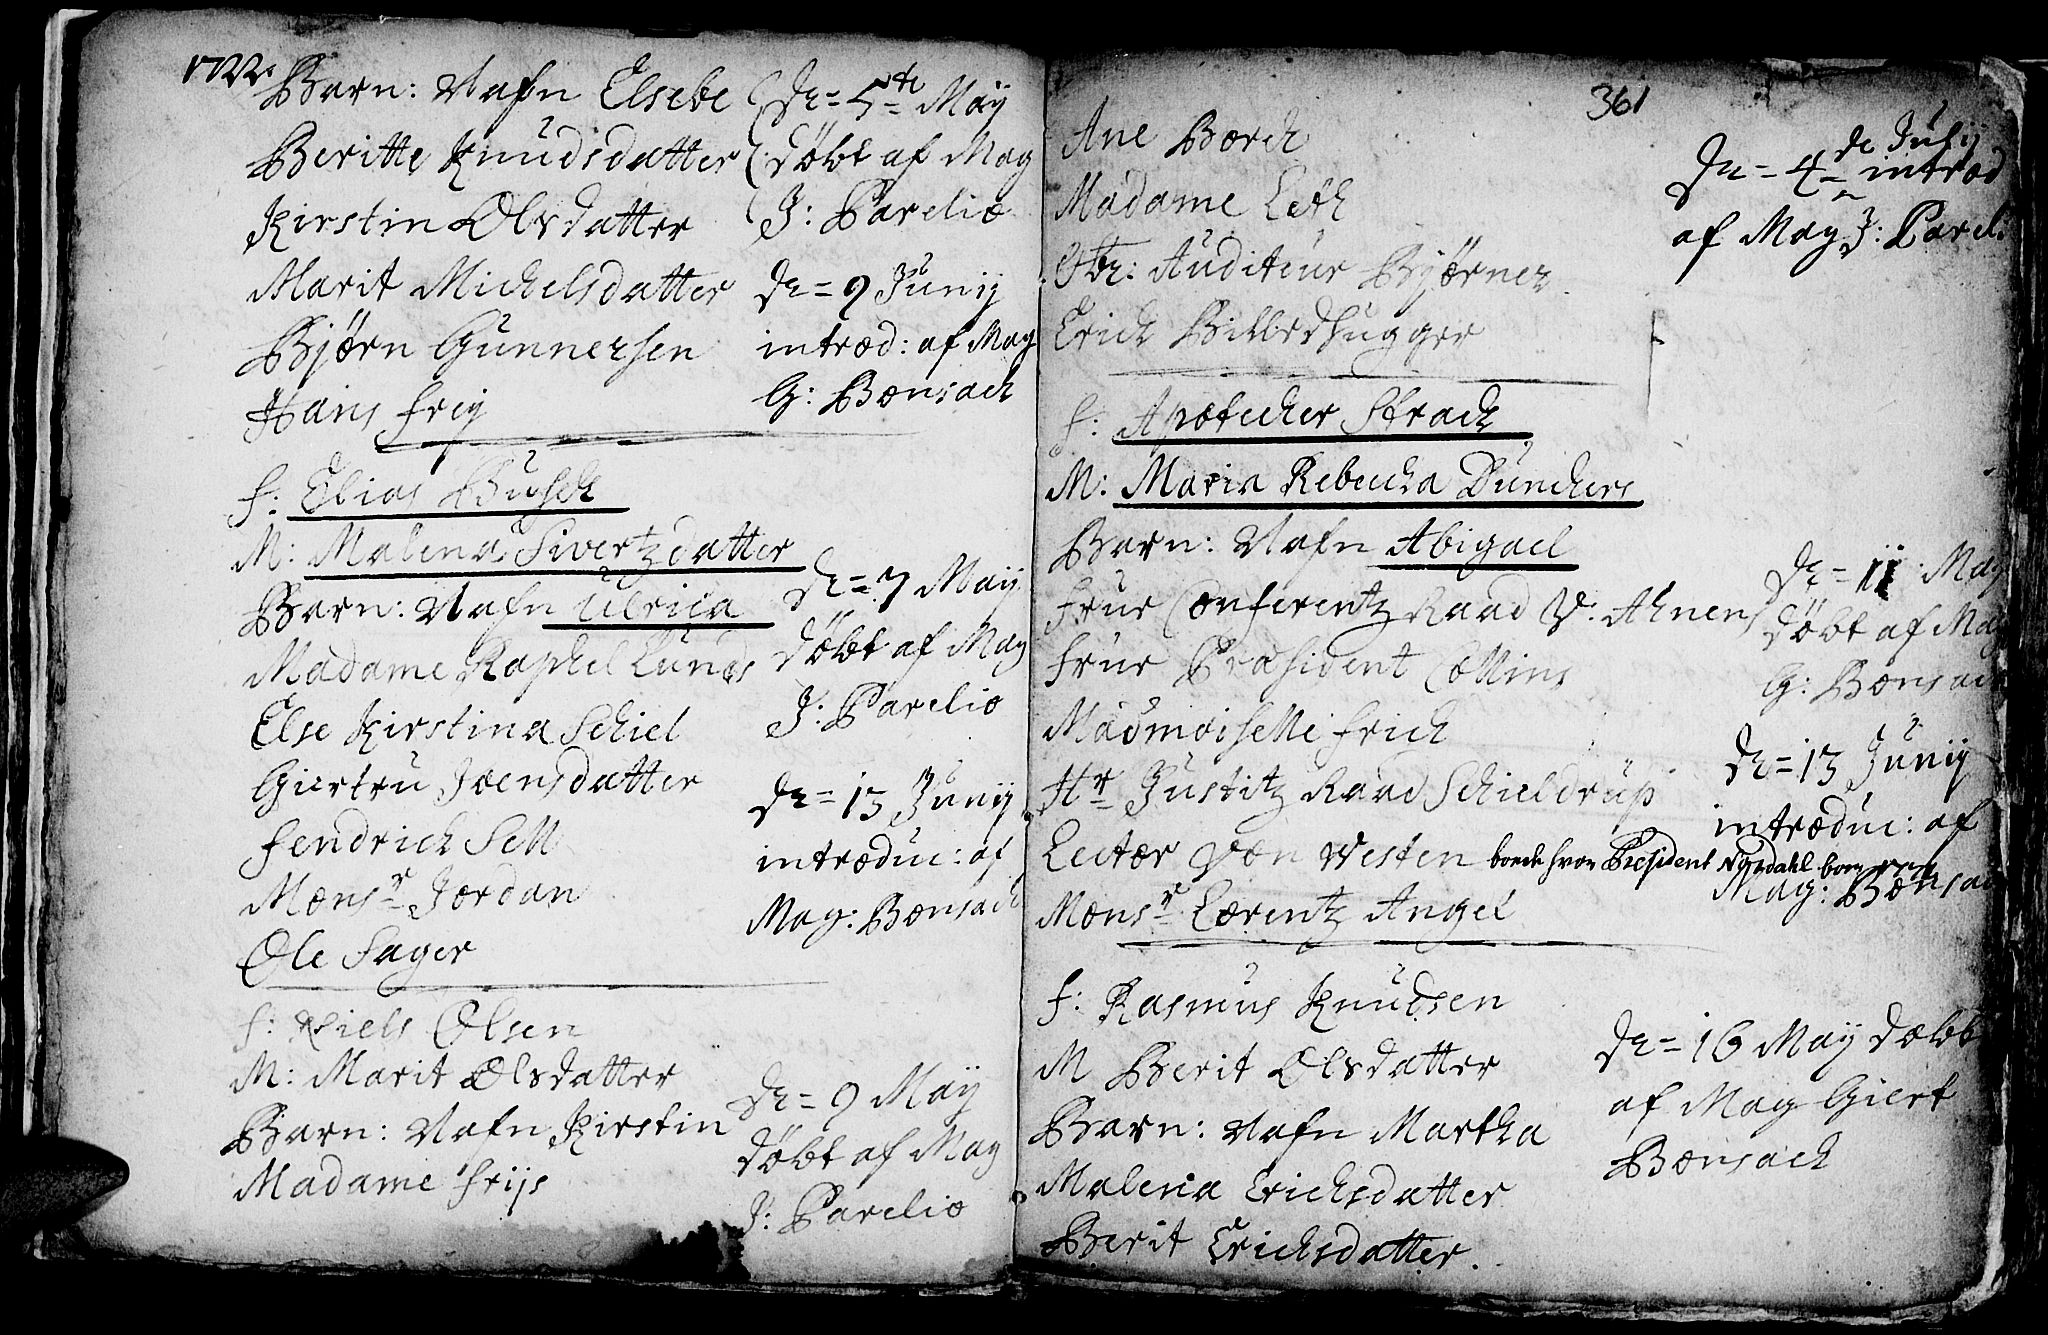 1722.
Barn: Nafn Elsebe
Beritte Knudsdatter
Kirstin Olsdatter
Marit Michelsdatter
Bjørn Gunnersen
Hans Frig
De = 5te Maÿ
døbt af Mag
J: Parelio
De = 9 Junij
introd: af Mag
G: Bonsach
F: Elias Busch
M: Malena Sivertzdatter
Barn: Nafn Ulrica
Madame Raphel Lunds
Else Kirstina Schiel
Giertru Joensdatter
Fendrich Sell
Monsr Jordan
Ole Sager
De = 7 Maÿ
døbt af Mag
J: Parelio
De = 13 Junij
introduc: af
Mag: Bonsach
F: Niels Olsen
M: Marit Olsdatter
Barn: Nafn Kirstin
Madame Frijs
De = 9 Maÿ
døbt af Mag
J: Parelio
361
Ane Borch
Madame Leth
Hr: Auditeur Bjørner
Erich Billedhugger
De = 4de Julij
introd
af Mag J: Pareli
F: Apotecher Strach
M: Maria Rebecka Dunchers
Barn: Nafn Abigael
Frur Conferentz Raad V: Ahnens
Frur Præsident Collins
Madmoiselle Frich
Hr Justitz Raad Schieldrup
Lector von Westen boede hvor Præsident Nordahl boer
Monsr Lorentz Angel
De = 11 May
døbt af Mag
G: Bonsach
De = 13 Junij
introduc: af
Mag: Bonsac
F: Rasmus Knudsen
M Berit Olsdatter
Barn: Nafn Martha
Malena Erichsdatter
Berit Erichsdatter.
De = 16 Maÿ døbt
af Mag Giert
Bonsach